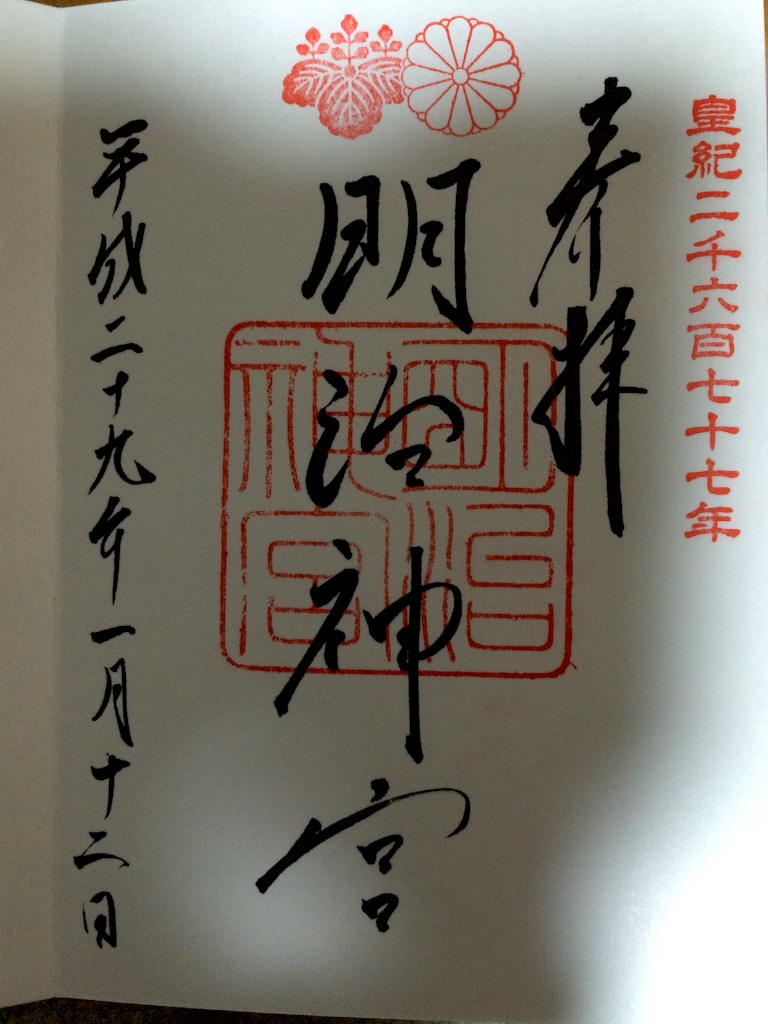 皇紀二千六百七十七年
奉拝
明治神宮
明治神宮
平成二十九年一月十二日